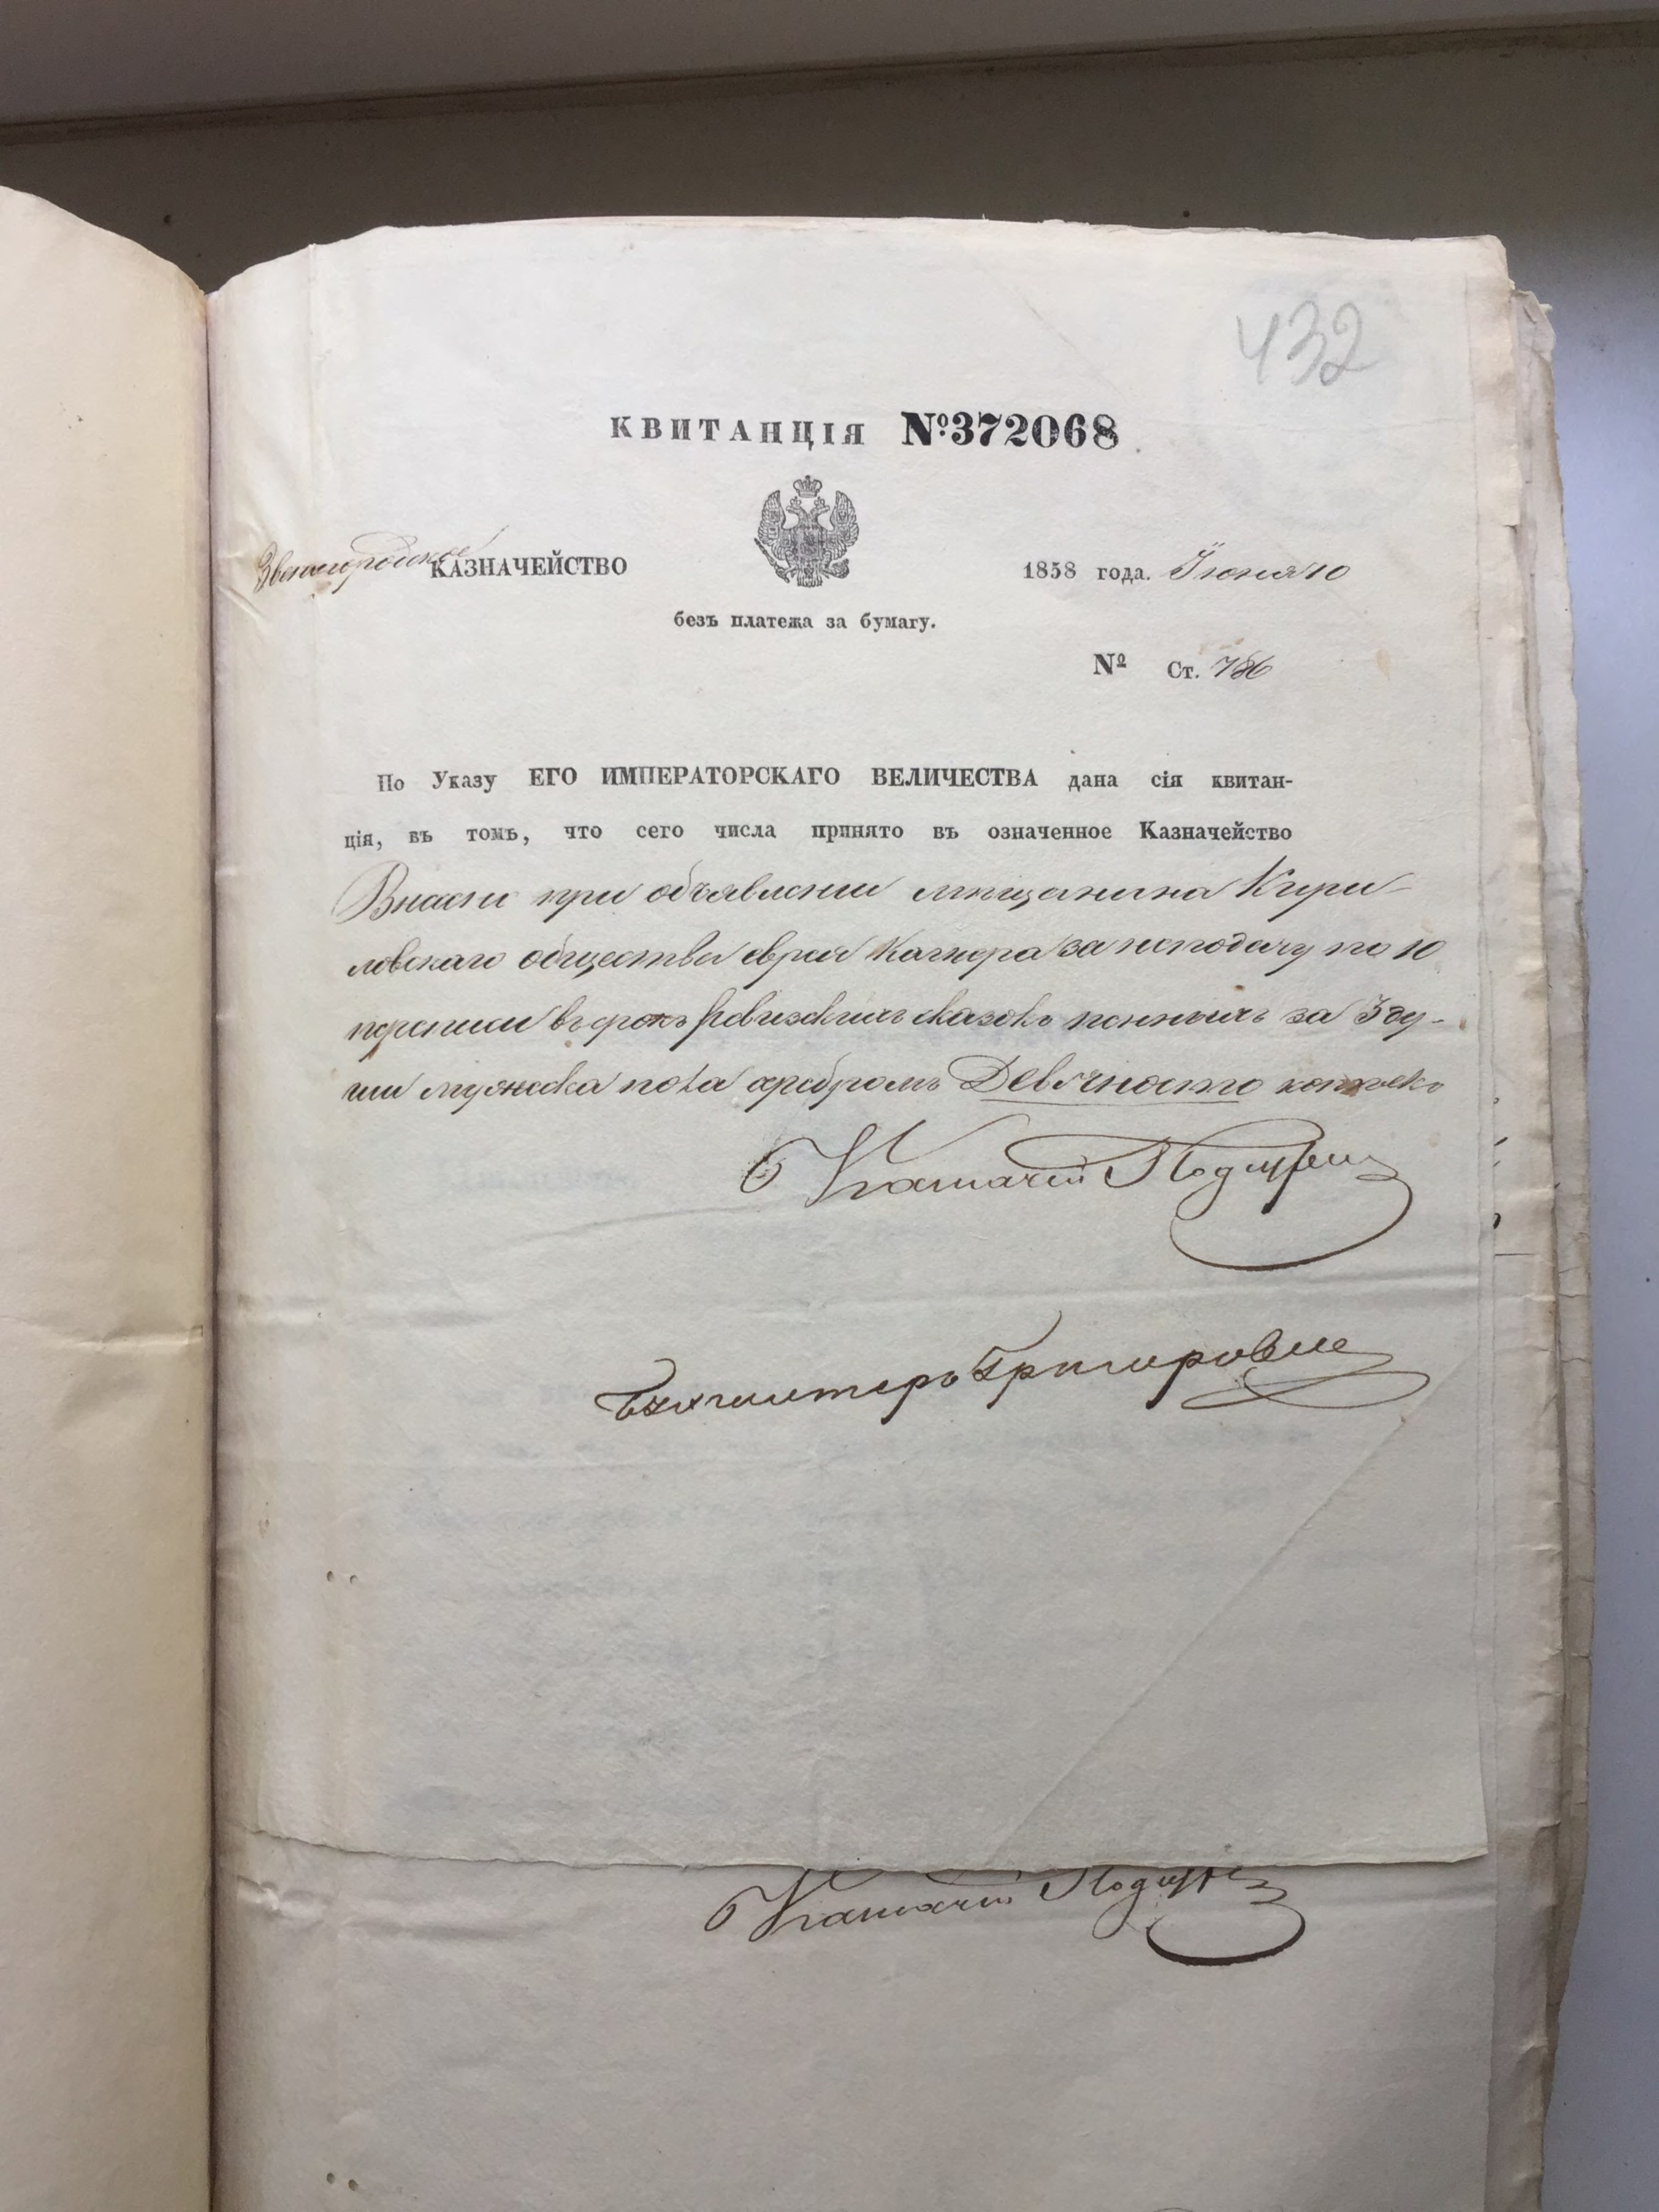 432
КВИТАНЦІЯ №372068
Звенигородское КАЗНАЧЕЙСТВО
1858 года. Іюня 10
безъ платежа за бумагу.
№ Ст. 786
По Указу ЕГО ИМПЕРАТОРСКАГО ВЕЛИЧЕСТВА дана сія квитан-
ція, въ томъ, что сего числа принято въ означенное Казначейство
при объявленіи мѣщанина Кири
ловскаго общества еврея за неподачу по 10
переписи въ срокъ Ревизскихъ сказокъ пенныхъ за 3 ду-
ши мужска пола серебромъ Девяносто копѣекъ
Казначей
Бухгалтеръ Григоровис
Казначей